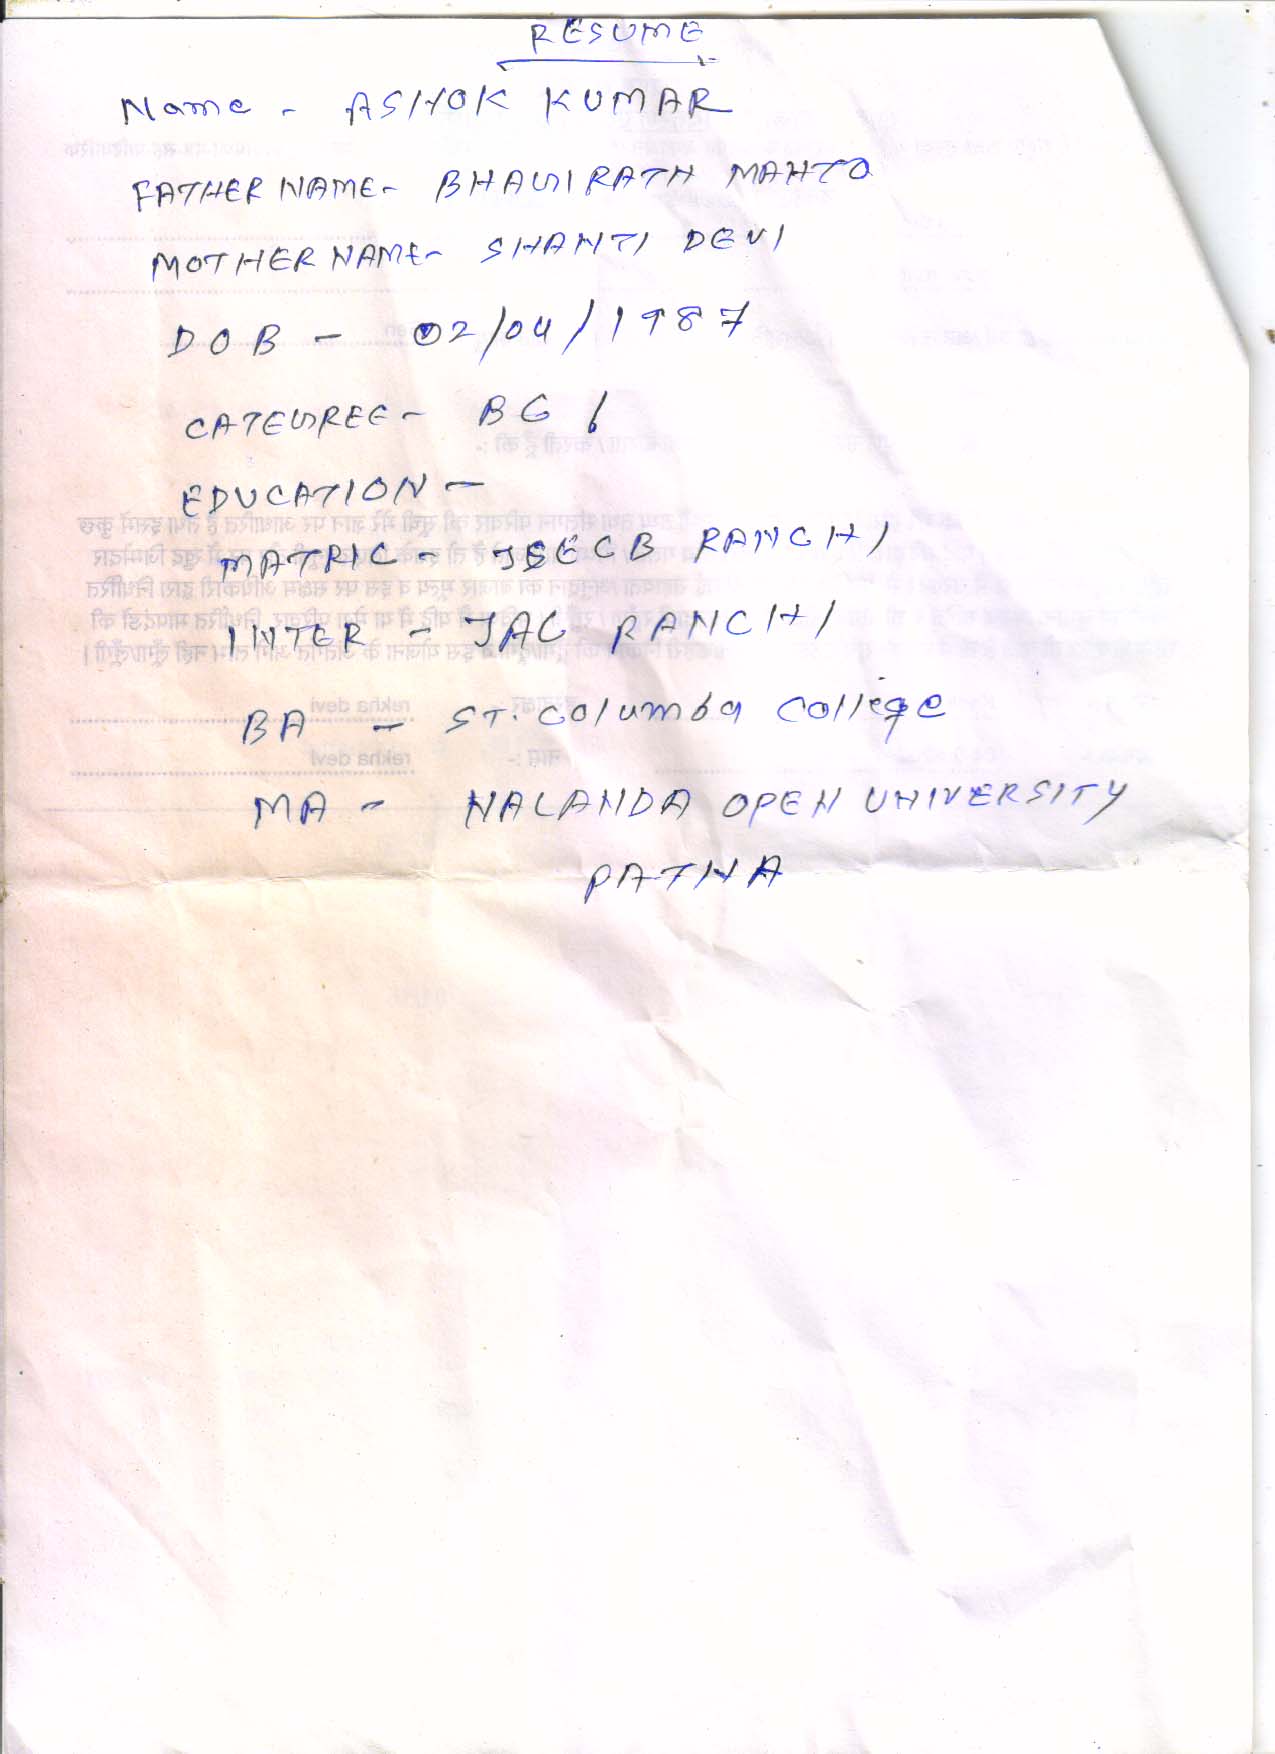 RESUME
Name - ASHOK KUMAR
FATHER NAME - BHAGIRATH MAHTO
MOTHER NAME - SHANTI DEVI
DOB - 02/04/1987
CATEGREE - BC I
EDUCATION -
MATRIC - JSECB RANCHI
INTER - JAC RANCHI
BA - ST. Columba College
MA - NALANDA OPEN UNIVERSITY
PATNA